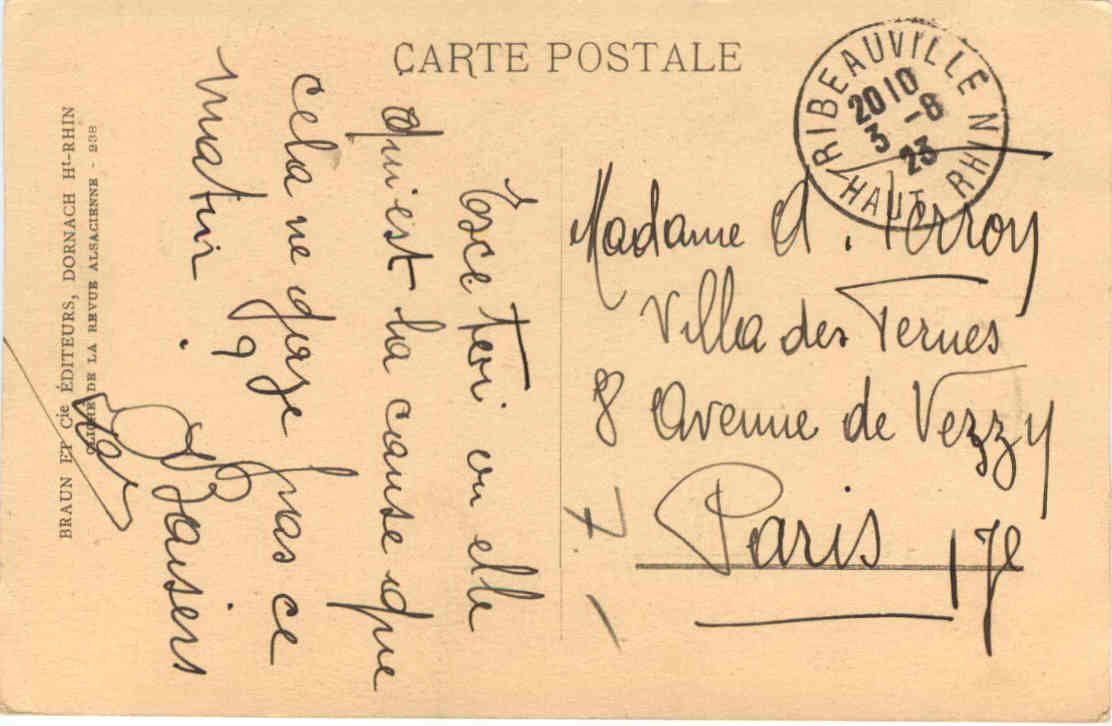 CARTE POSTALE
RIBEAUVILLE
HAUT RHIN
2010
3 -8
23
Madame A. Terroy
Villa des Ternes
8 Avenue de Verzy
Paris 17e
Est ce toi ou elle
qui est la cause que
cela ne gaze pas ce
matin ?
Baisers
BRAUN ET Cie ÉDITEURS, DORNACH Ht-RHIN
CLICHÉ DE LA REVUE ALSACIENNE - 238